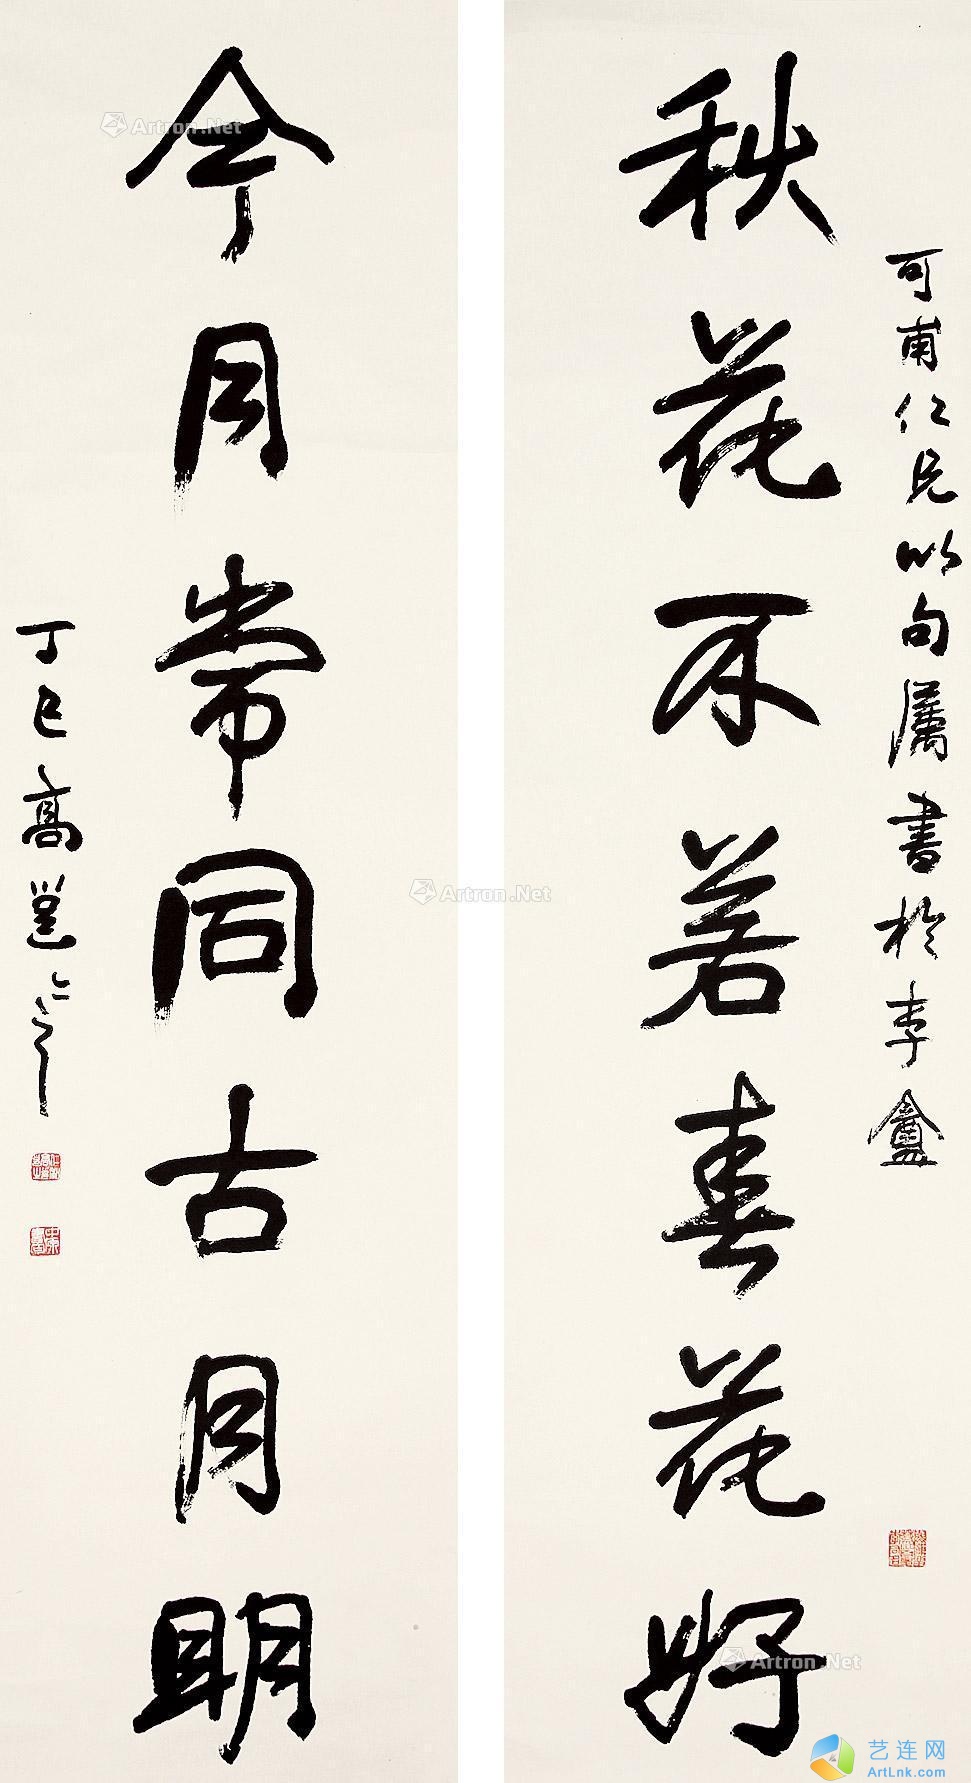 可甫仁兄以句属書於李盦
秋花不若春花好
今月常同古月明
丁巳高邕
Artron.Net
Artron.Net
Artron.Net
艺连网
ArtLnk.com